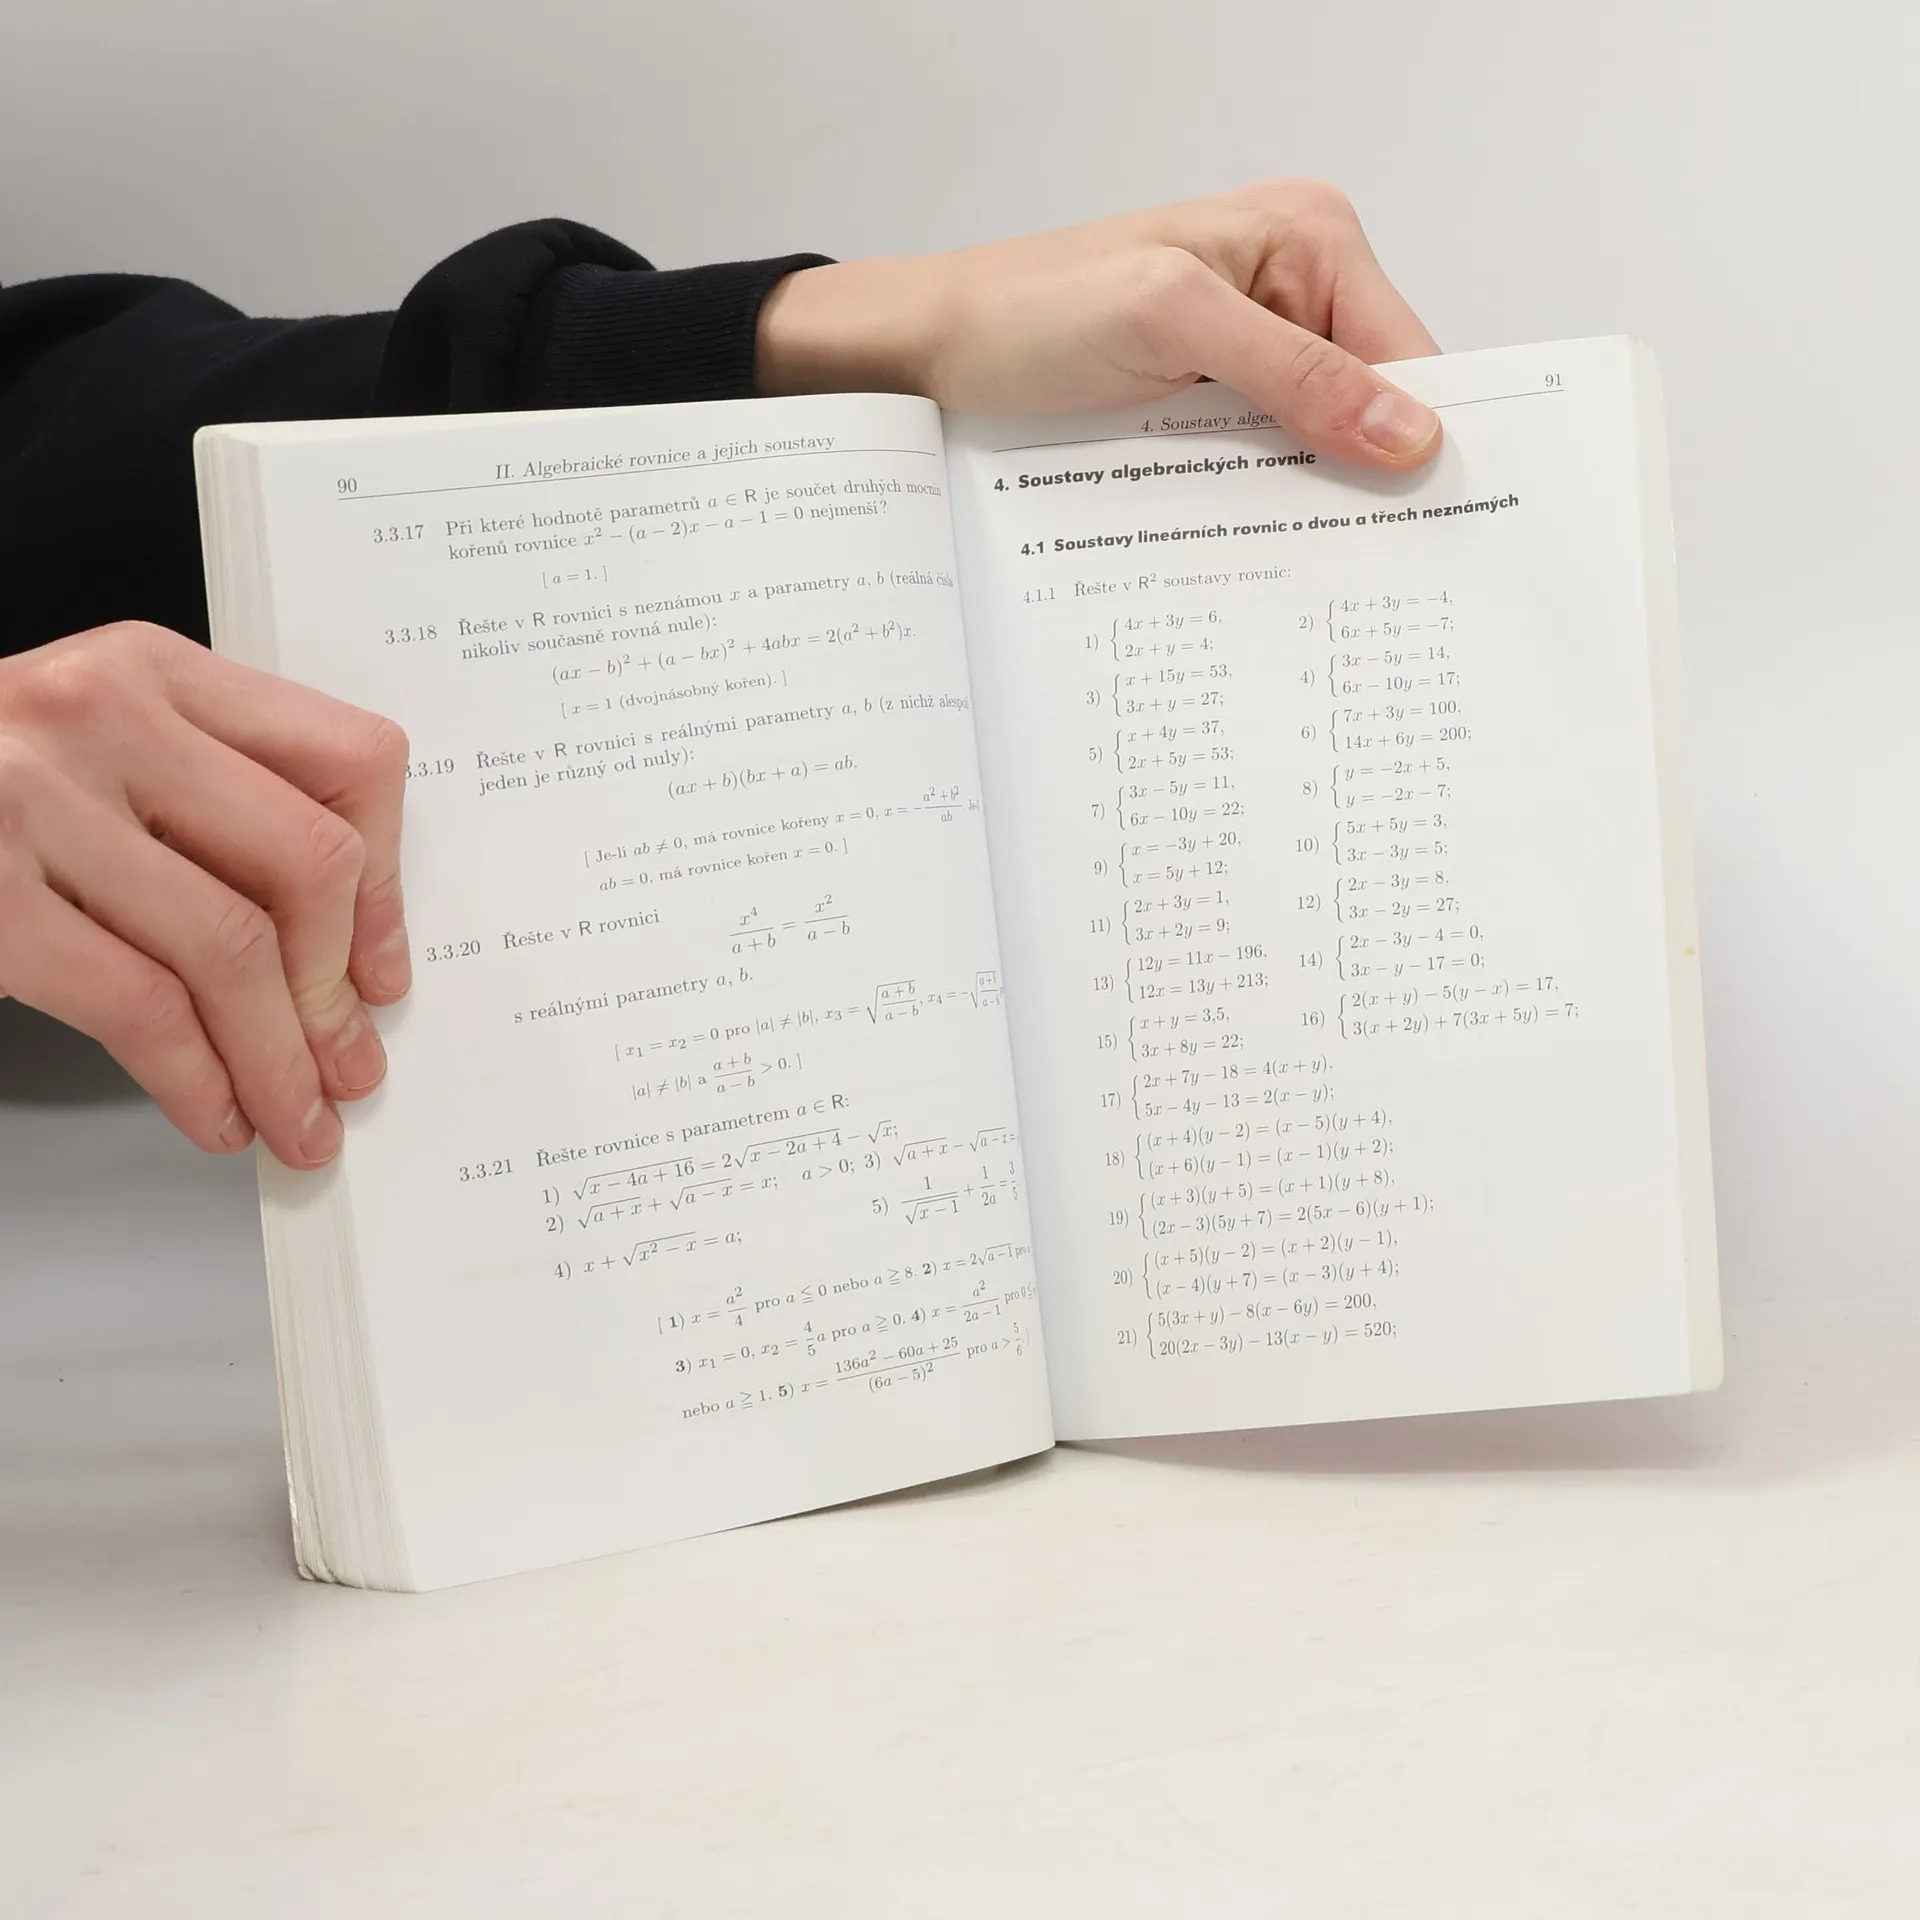 90
II. Algebraické rovnice a jejich soustavy
3.3.17 Při které hodnotě parametrů a ∈ R je součet druhých mocnin
kořenů rovnice x² − (a − 2)x − a − 1 = 0 nejmenší?
[ a = 1. ]
3.3.18 Řešte v R rovnici s neznámou x a parametry a, b (reálná čísla
nikoliv současně rovná nule):
(ax − b)² + (a − bx)² + 4abx = 2(a² + b²)x.
[ x = 1 (dvojnásobný kořen). ]
3.3.19 Řešte v R rovnici s reálnými parametry a, b (z nichž alespoň
jeden je různý od nuly):
(ax + b)(bx + a) = ab.
[ Je-li ab ≠ 0, má rovnice kořeny x = 0, x = −(a² + b²)/ab. Je-li
ab = 0, má rovnice kořen x = 0. ]
3.3.20 Řešte v R rovnici x⁴/(a + b) = x²/(a − b)
s reálnými parametry a, b.
[ x₁ = x₂ = 0 pro |a| ≠ |b|, x₃ = √((a + b)/(a − b)), x₄ = −√((a + b)/(a − b))
|a| ≠ |b| a (a + b)/(a − b) > 0. ]
3.3.21 Řešte rovnice s parametrem a ∈ R:
1) √(x − 4a + 16) = 2√(x − 2a + 4) − √x;
2) √(a + x) + √(a − x) = x; a > 0; 3) √(a + x) − √(a − x) =
4) x + √(x² − x) = a; 5) 1/√(x − 1) + 1/2a = 3/5
[ 1) x = a²/4 pro a ≦ 0 nebo a ≧ 8. 2) x = 2√(a − 1) pro
3) x₁ = 0, x₂ = 4/5 a pro a ≧ 0. 4) x = a²/(2a − 1) pro 0 ≦
nebo a ≧ 1. 5) x = (136a² − 60a + 25)/(6a − 5)² pro a > 5/6. ]
91
4. Soustavy
4. Soustavy algebraických rovnic
4.1 Soustavy lineárních rovnic o dvou a třech neznámých
4.1.1 Řešte v R² soustavy rovnic:
1) { 4x + 3y = 6,
2x + y = 4;
2) { 4x + 3y = −4,
6x + 5y = −7;
3) { x + 15y = 53,
3x + y = 27;
4) { 3x − 5y = 14,
6x − 10y = 17;
5) { x + 4y = 37,
2x + 5y = 53;
6) { 7x + 3y = 100,
14x + 6y = 200;
7) { 3x − 5y = 11,
6x − 10y = 22;
8) { y = −2x + 5,
y = −2x − 7;
9) { x = −3y + 20,
x = 5y + 12;
10) { 5x + 5y = 3,
3x − 3y = 5;
11) { 2x + 3y = 1,
3x + 2y = 9;
12) { 2x − 3y = 8,
3x − 2y = 27;
13) { 12y = 11x − 196,
12x = 13y + 213;
14) { 2x − 3y − 4 = 0,
3x − y − 17 = 0;
15) { x + y = 3,5,
3x + 8y = 22;
16) { 2(x + y) − 5(y − x) = 17,
3(x + 2y) + 7(3x + 5y) = 7;
17) { 2x + 7y − 18 = 4(x + y),
5x − 4y − 13 = 2(x − y);
18) { (x + 4)(y − 2) = (x − 5)(y + 4),
(x + 6)(y − 1) = (x − 1)(y + 2);
19) { (x + 3)(y + 5) = (x + 1)(y + 8),
(2x − 3)(5y + 7) = 2(5x − 6)(y + 1);
20) { (x + 5)(y − 2) = (x + 2)(y − 1),
(x − 4)(y + 7) = (x − 3)(y + 4);
21) { 5(3x + y) − 8(x − 6y) = 200,
20(2x − 3y) − 13(x − y) = 520;